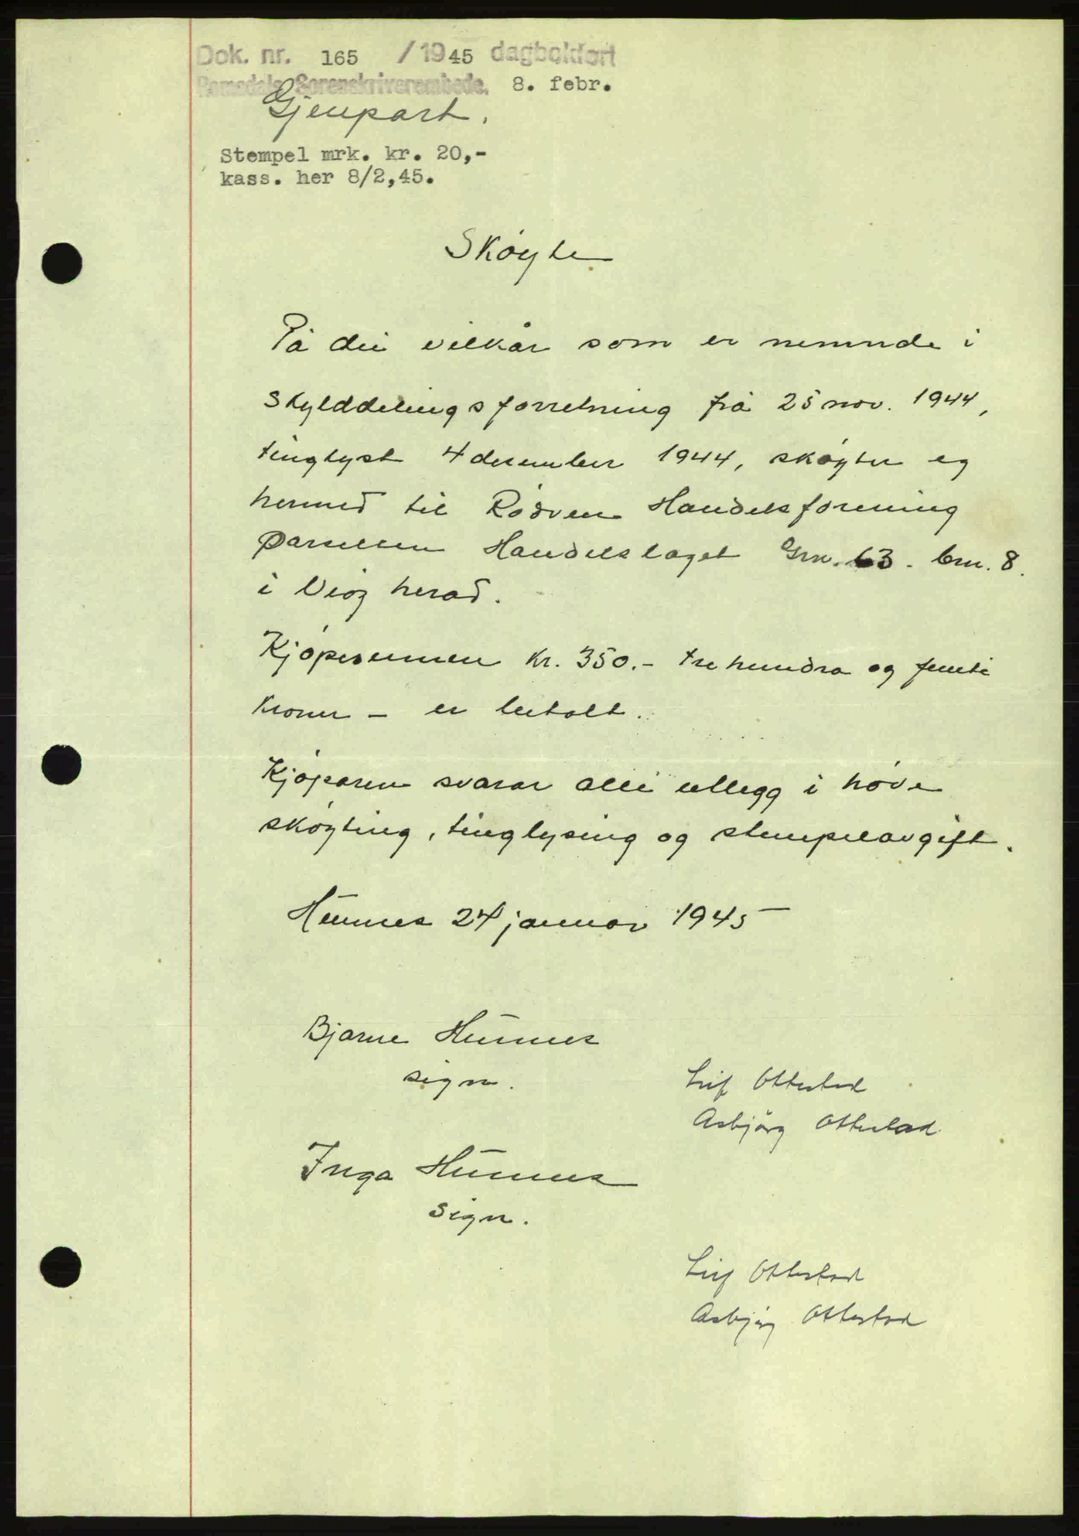 Dok. nr. 165 / 1945 dagbokført
Romsdals Sorenskriverembede. 8. febr.
Gjenpart.
Stempel mrk. kr. 20,-
kass. her 8/2,45.
Skøyte
På dei vilkår som er nemnde i
skylddelingsforretning frå 25 nov. 1944,
tinglyst 4 desember 1944, skøyter eg
hermed til Rødven Handelsforening
Parsellen Handelslaget Grn. 63. brn. 8.
i Veøy herad.
Kjøpesummen kr. 350.- tre hundra og femti
kroner - er betalt.
Kjøparen svarar alle utlegg i høve
skøyting, tinglysing og stempelavgift.
Hunnes 24 januar 1945
Bjarne Hunnes
sign.
Leif Otterstad
Asbjörg Otterstad
Inga Hunnes
sign.
Leif Otterstad
Asbjörg Otterstad